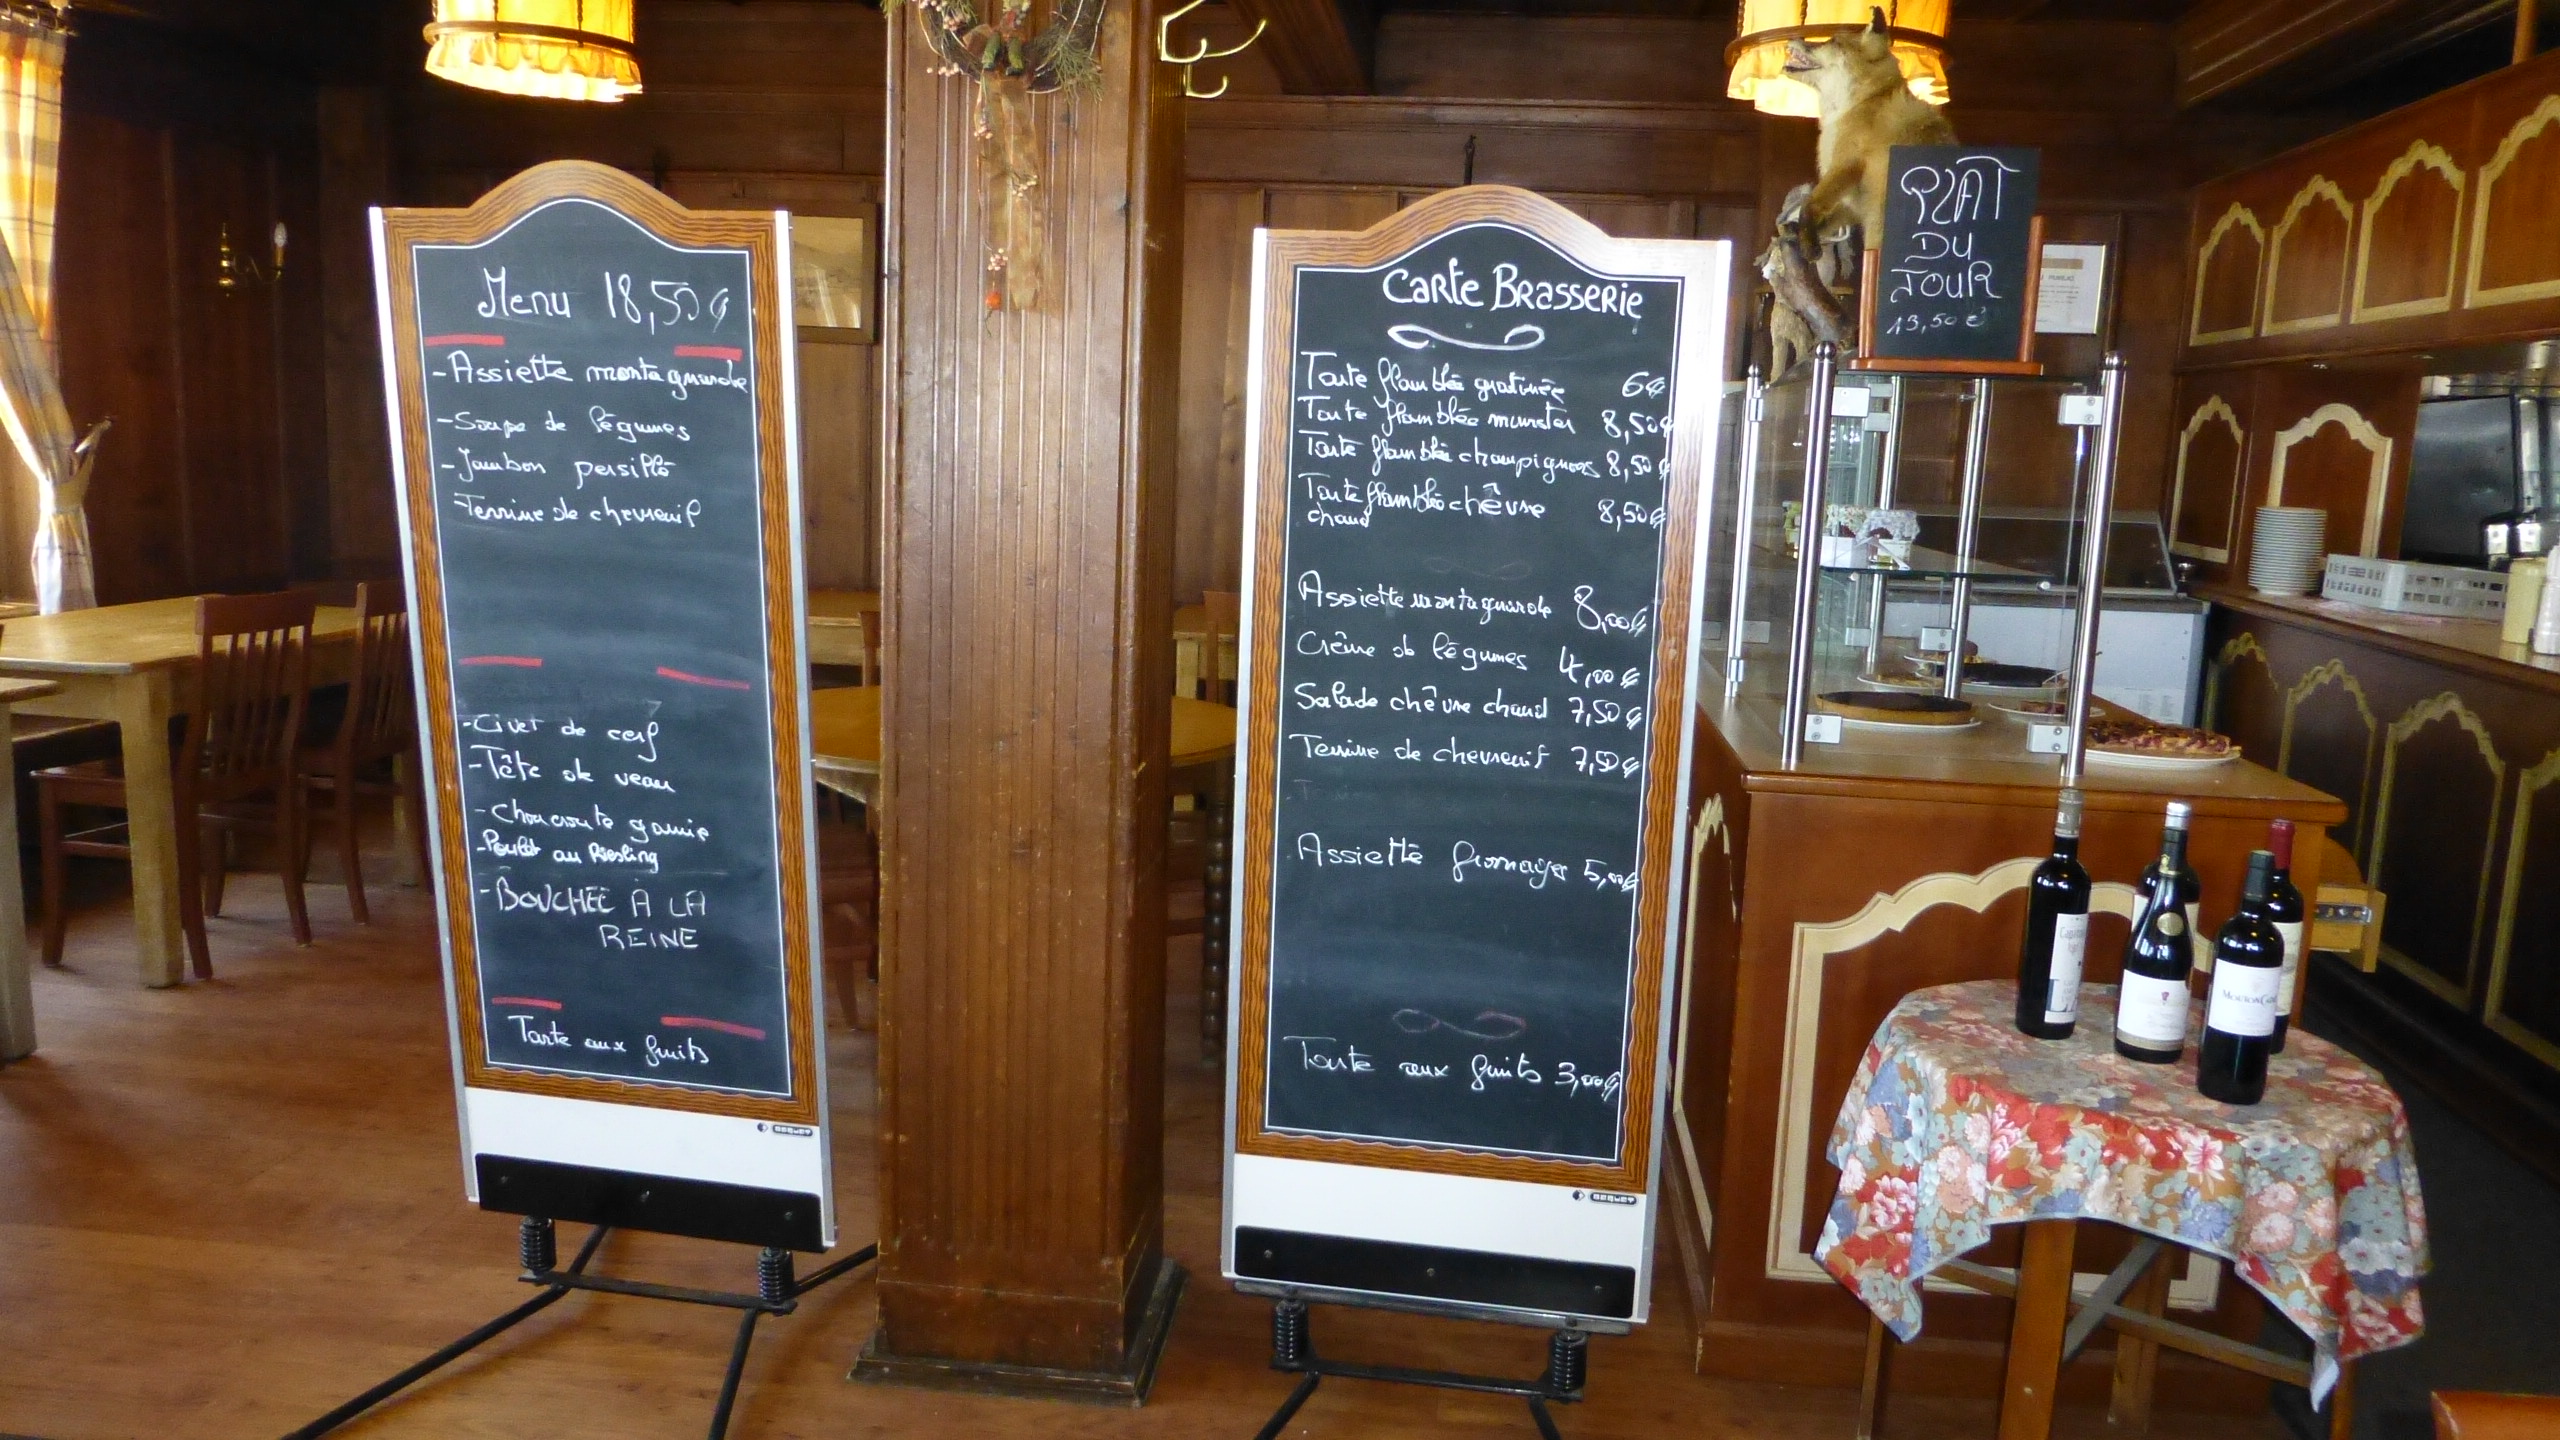 Menu 18,50€
-Assiette montagnarde
-Soupe de légumes
-Jambon persillé
-Terrine de chevreuil
-Civet de cerf
-Tête de veau
-Choucroute garnie
-Poulet au Riesling
-BOUCHÉE À LA
REINE
Tarte aux fruits
Carte Brasserie
Tarte flambée gratinée 6€
Tarte flambée munster 8,50€
Tarte flambée champignons 8,50€
Tarte flambée chêvre 8,50€
chaud
Assiette montagnarde 8,00€
Crême de légumes 4,00€
Salade chêvre chaud 7,50€
Terrine de chevreuil 7,50€
Assiette fromages 5,00€
Tarte aux fruits 3,00€
PLAT
DU
JOUR
13,50 €